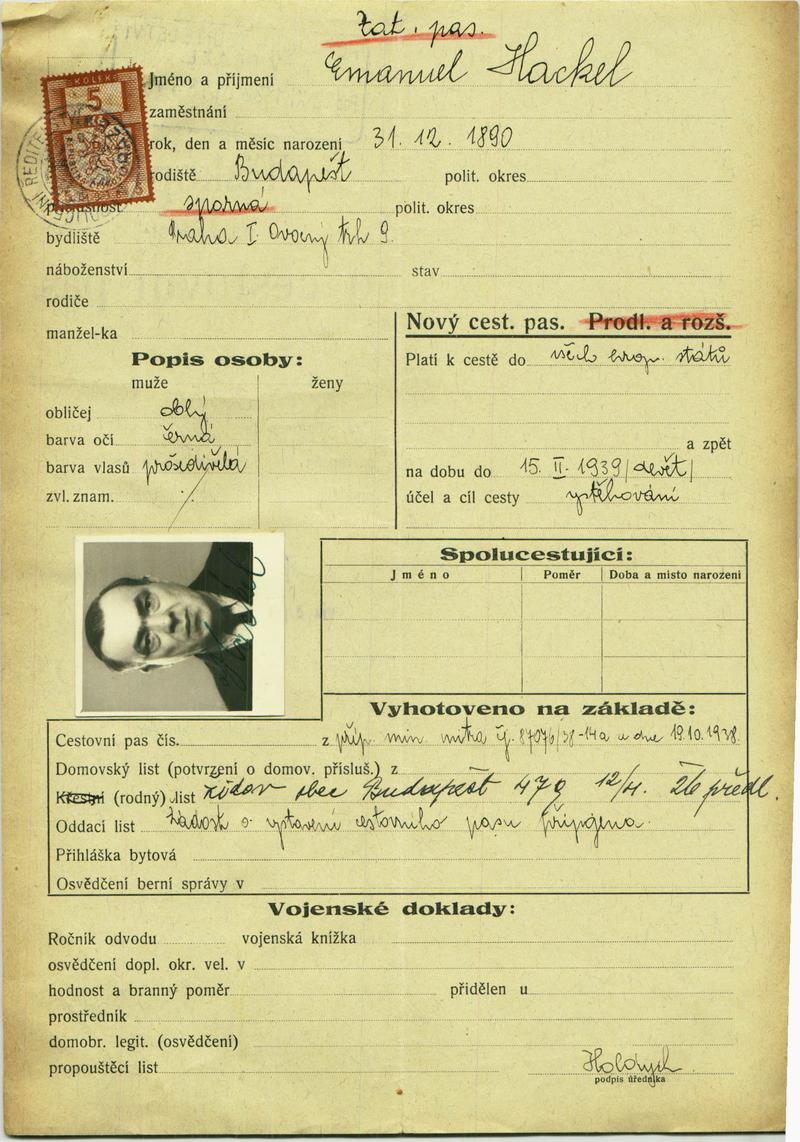 Zat. pas.
KOLEK
5
Jméno a příjmení Emanuel Hackel
zaměstnání
rok, den a měsíc narození 31. 12. 1890
rodiště Budapešt polit. okres
příslušnost sporná polit. okres
bydliště Praha I. Ovocný trh 9.
náboženství stav
rodiče
manžel-ka
Nový cest. pas. Prodl. a rozš.
Popis osoby:
muže ženy
obličej oblý
barva očí černá
barva vlasů prošedivělá
zvl. znam.
Platí k cestě do všech evrop. států
a zpět
na dobu do 15. II. 1939/devět/
účel a cíl cesty vystěhování
Spolucestující:
Jméno Poměr Doba a misto narozeni
Vyhotoveno na základě:
Cestovní pas čís. z příp. min. vnitra čj. 87076/38-14a ze dne 19.10.1938.
Domovský list (potvrzení o domov. přísluš.) z
Křestní (rodný) list židov obec Budapešt 479 12/4. 26 předl.
Oddací list Žádost o vystavení cestovního pasu připojena.
Přihláška bytová
Osvědčení berní správy v
Vojenské doklady:
Ročník odvodu vojenská knížka
osvědčení dopl. okr. vel. v
hodnost a branný poměr přidělen u
prostředník
domobr. legit. (osvědčení)
propouštěcí list
podpis úředníka